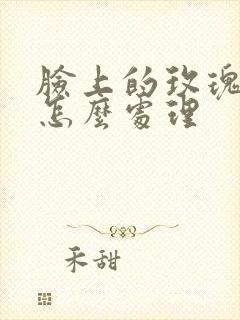 臉上的玫瑰
怎麼處理
禾甜